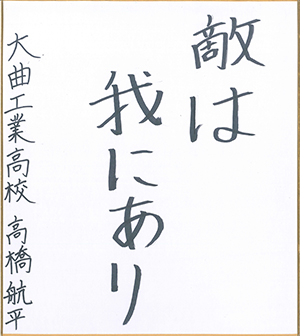 敵は
我にあり
大曲工業高校 高橋航平